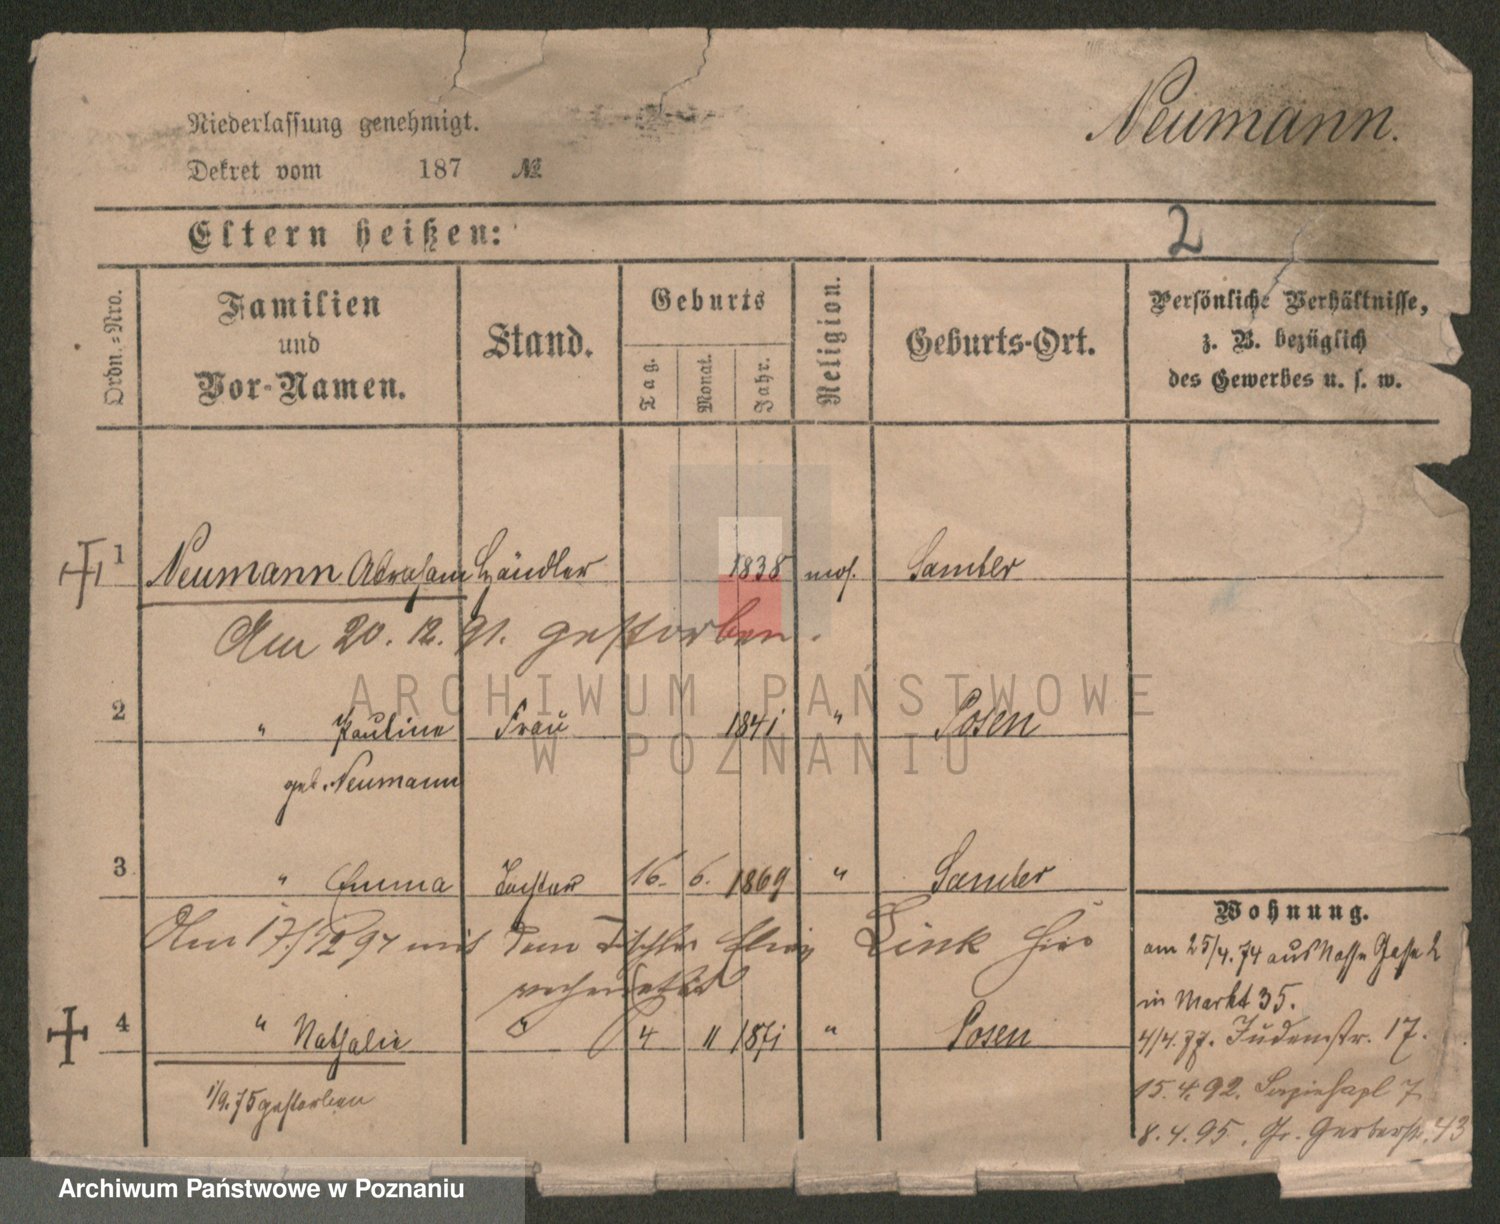 Niederlassung genehmigt.
Neumann.
Dekret vom 187 №
Eltern heißen:
2
Ordn.-Nro.
Familien
und
Vor-Namen.
Stand.
Geburts
Tag.
Monat.
Jahr.
Religion.
Geburts-Ort.
Persönliche Verhältnisse,
z. B. bezüglich
des Gewerbes u. s. w.
1 Neumann Abraham Händler 1838 mos. Samter
Am 20.12.91. gestorben.
2 " Pauline Frau 1841 " Posen
geb. Neumann
3 " Emma Tochter 16. 6. 1869 " Samter
Am 17./12 94 mit dem Tischler Link hier
verheiratet
4 " Nathalie " 4 11 1871 " Posen
1/9.75 gestorben
Wohnung.
am 25/4.74 aus Nasse Gasse 2
in Markt 35.
4/4.77. Judenstr. 17.
15.4.92. Sapiehapl 7
8.4.95. Gr. Gerberstr. 43
ARCHIWUM PAŃSTWOWE
W POZNANIU
Archiwum Państwowe w Poznaniu